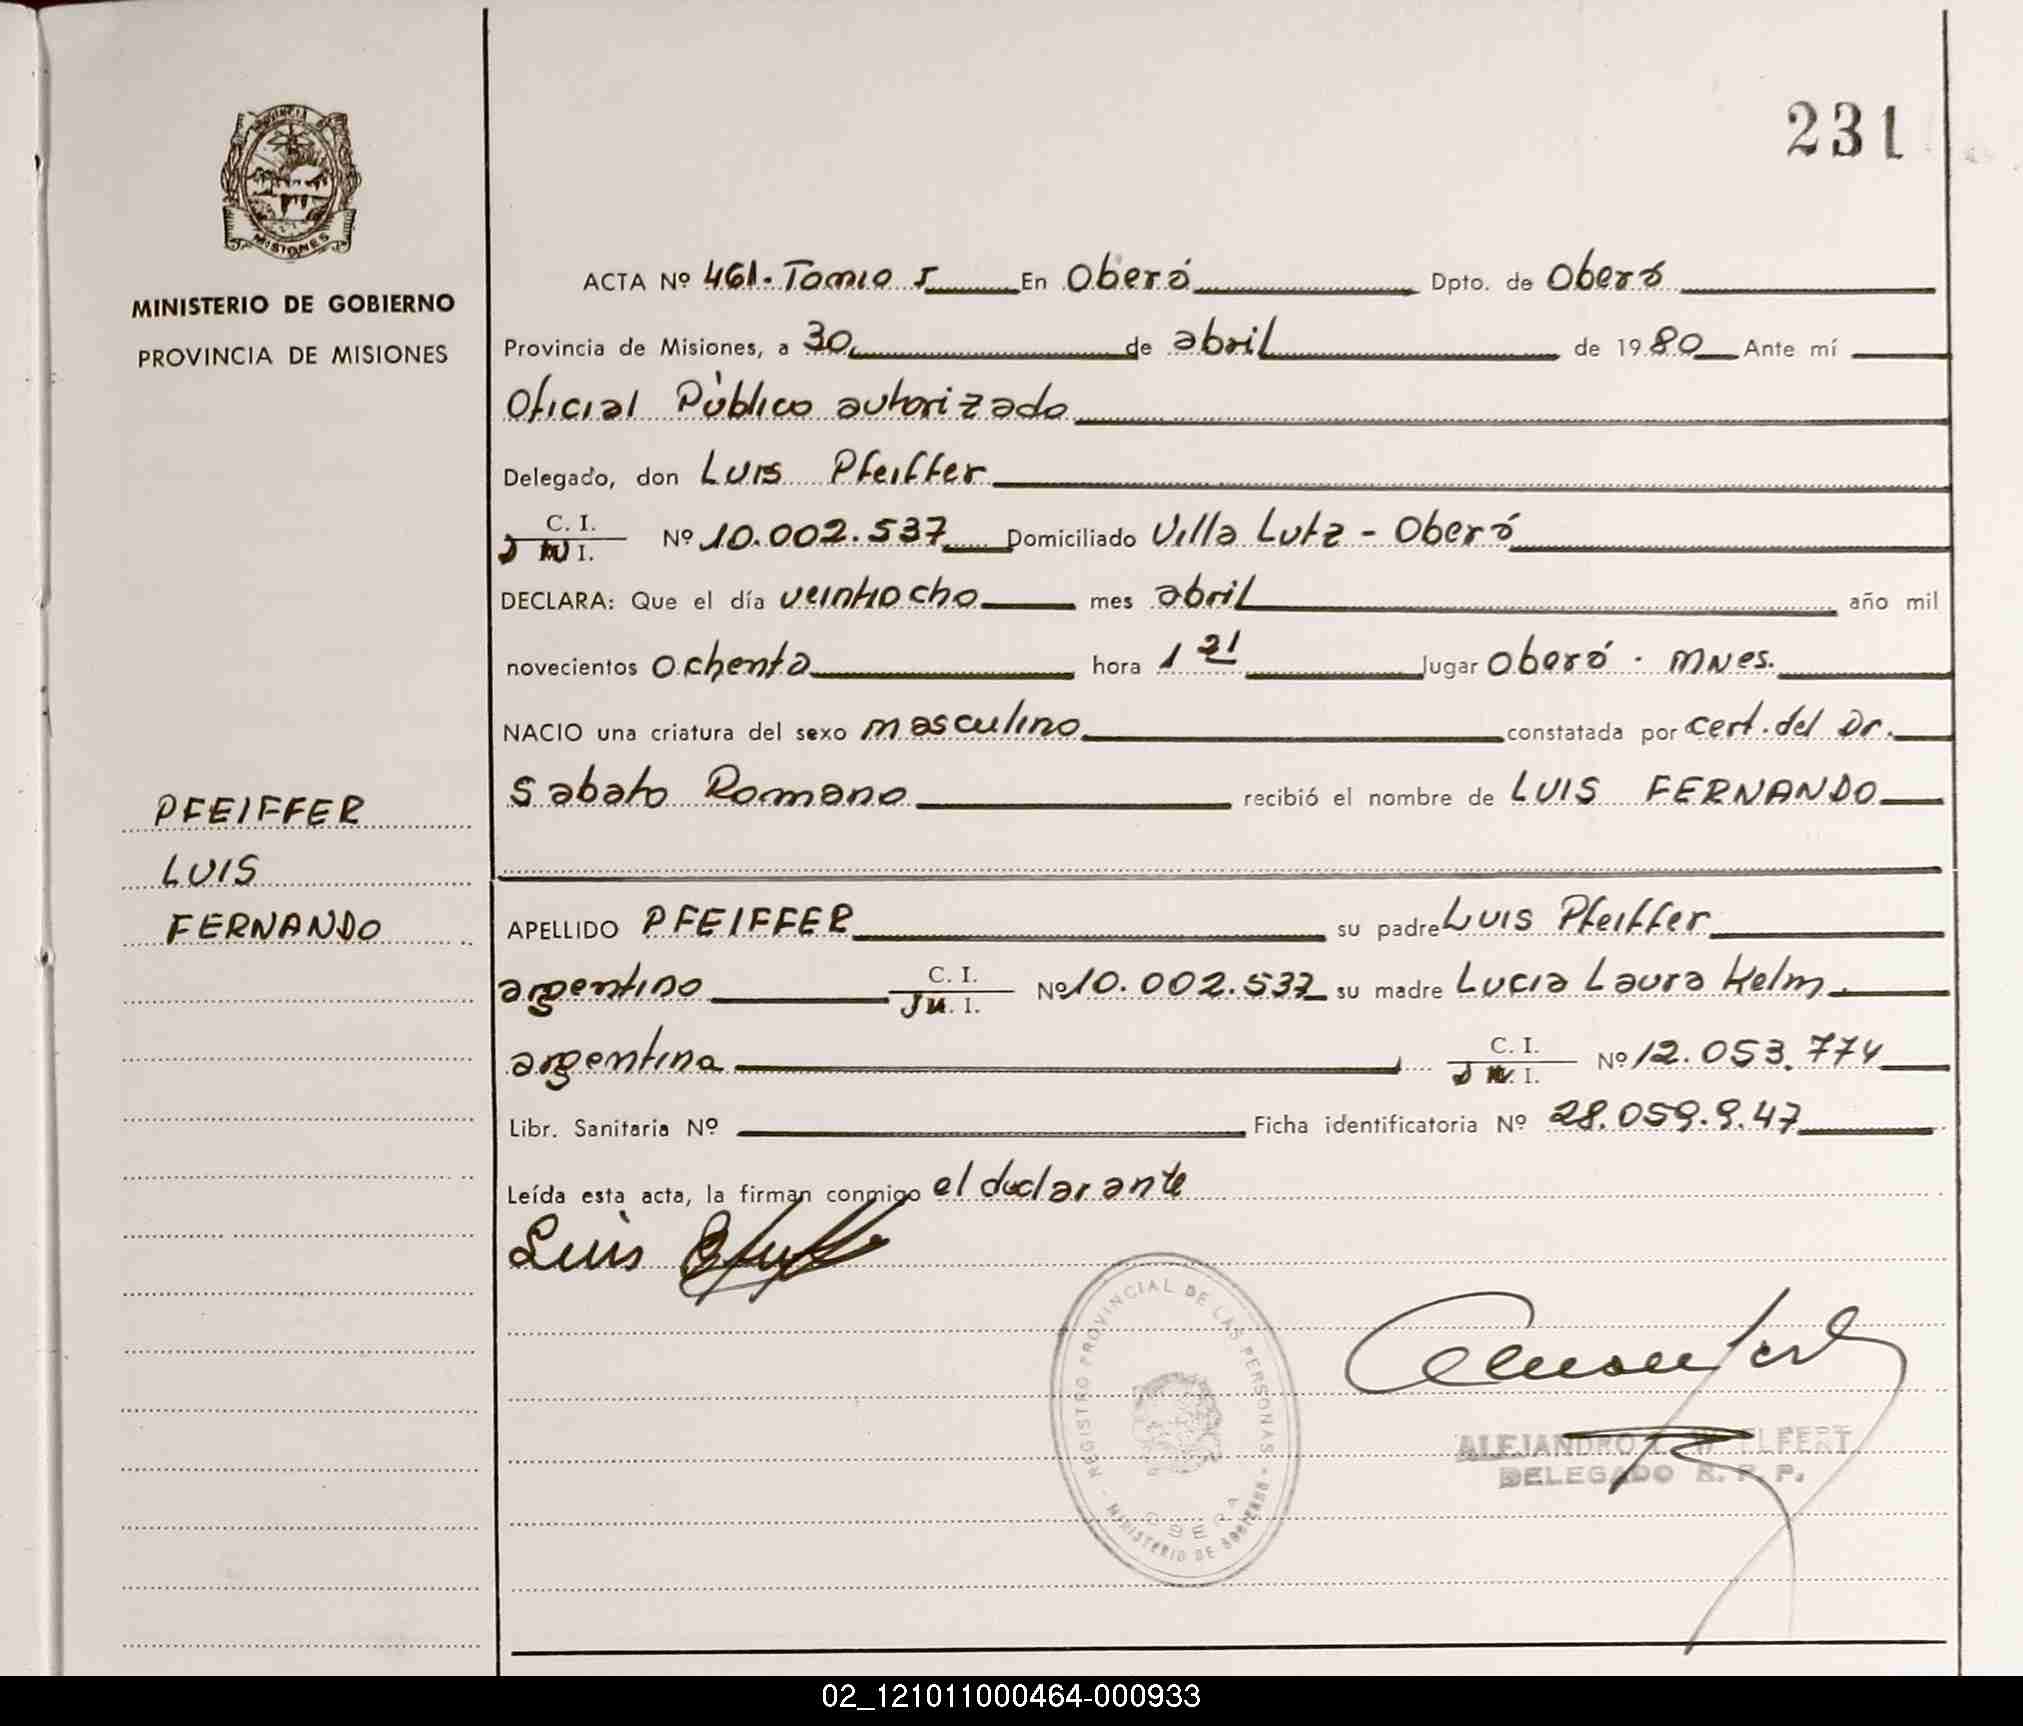 231
PROVINCIA DE
MISIONES
MINISTERIO DE GOBIERNO
PROVINCIA DE MISIONES
PFEIFFER
LUIS
FERNANDO
ACTA Nº 461. Tomo I En Oberá Dpto. de Oberá
Provincia de Misiones, a 30 de abril de 1980 Ante mí
Oficial Público autorizado
Delegado, don Luis Pfeiffer
C. I.
I. Nº 10.002.537 Domiciliado Villa Lutz - Oberá
DECLARA: Que el día veintiocho mes abril año mil
novecientos ochenta hora 1 21 lugar Oberá . Mnes.
NACIO una criatura del sexo masculino constatada por cert. del Dr.
Sabato Romano recibió el nombre de LUIS FERNANDO
APELLIDO PFEIFFER su padre Luis Pfeiffer
argentino C. I. I. Nº 10.002.537 su madre Lucia Laura Kelm.
argentina C. I. I. Nº 12.053.774
Libr. Sanitaria Nº Ficha identificatoria Nº 28.059.9.47
Leída esta acta, la firman conmigo el declarante
Luis
REGISTRO PROVINCIAL DE LAS PERSONAS
OBERA
MINISTERIO DE GOBIERNO
ALEJANDRO
DELEGADO R. P. P.
02_121011000464-000933